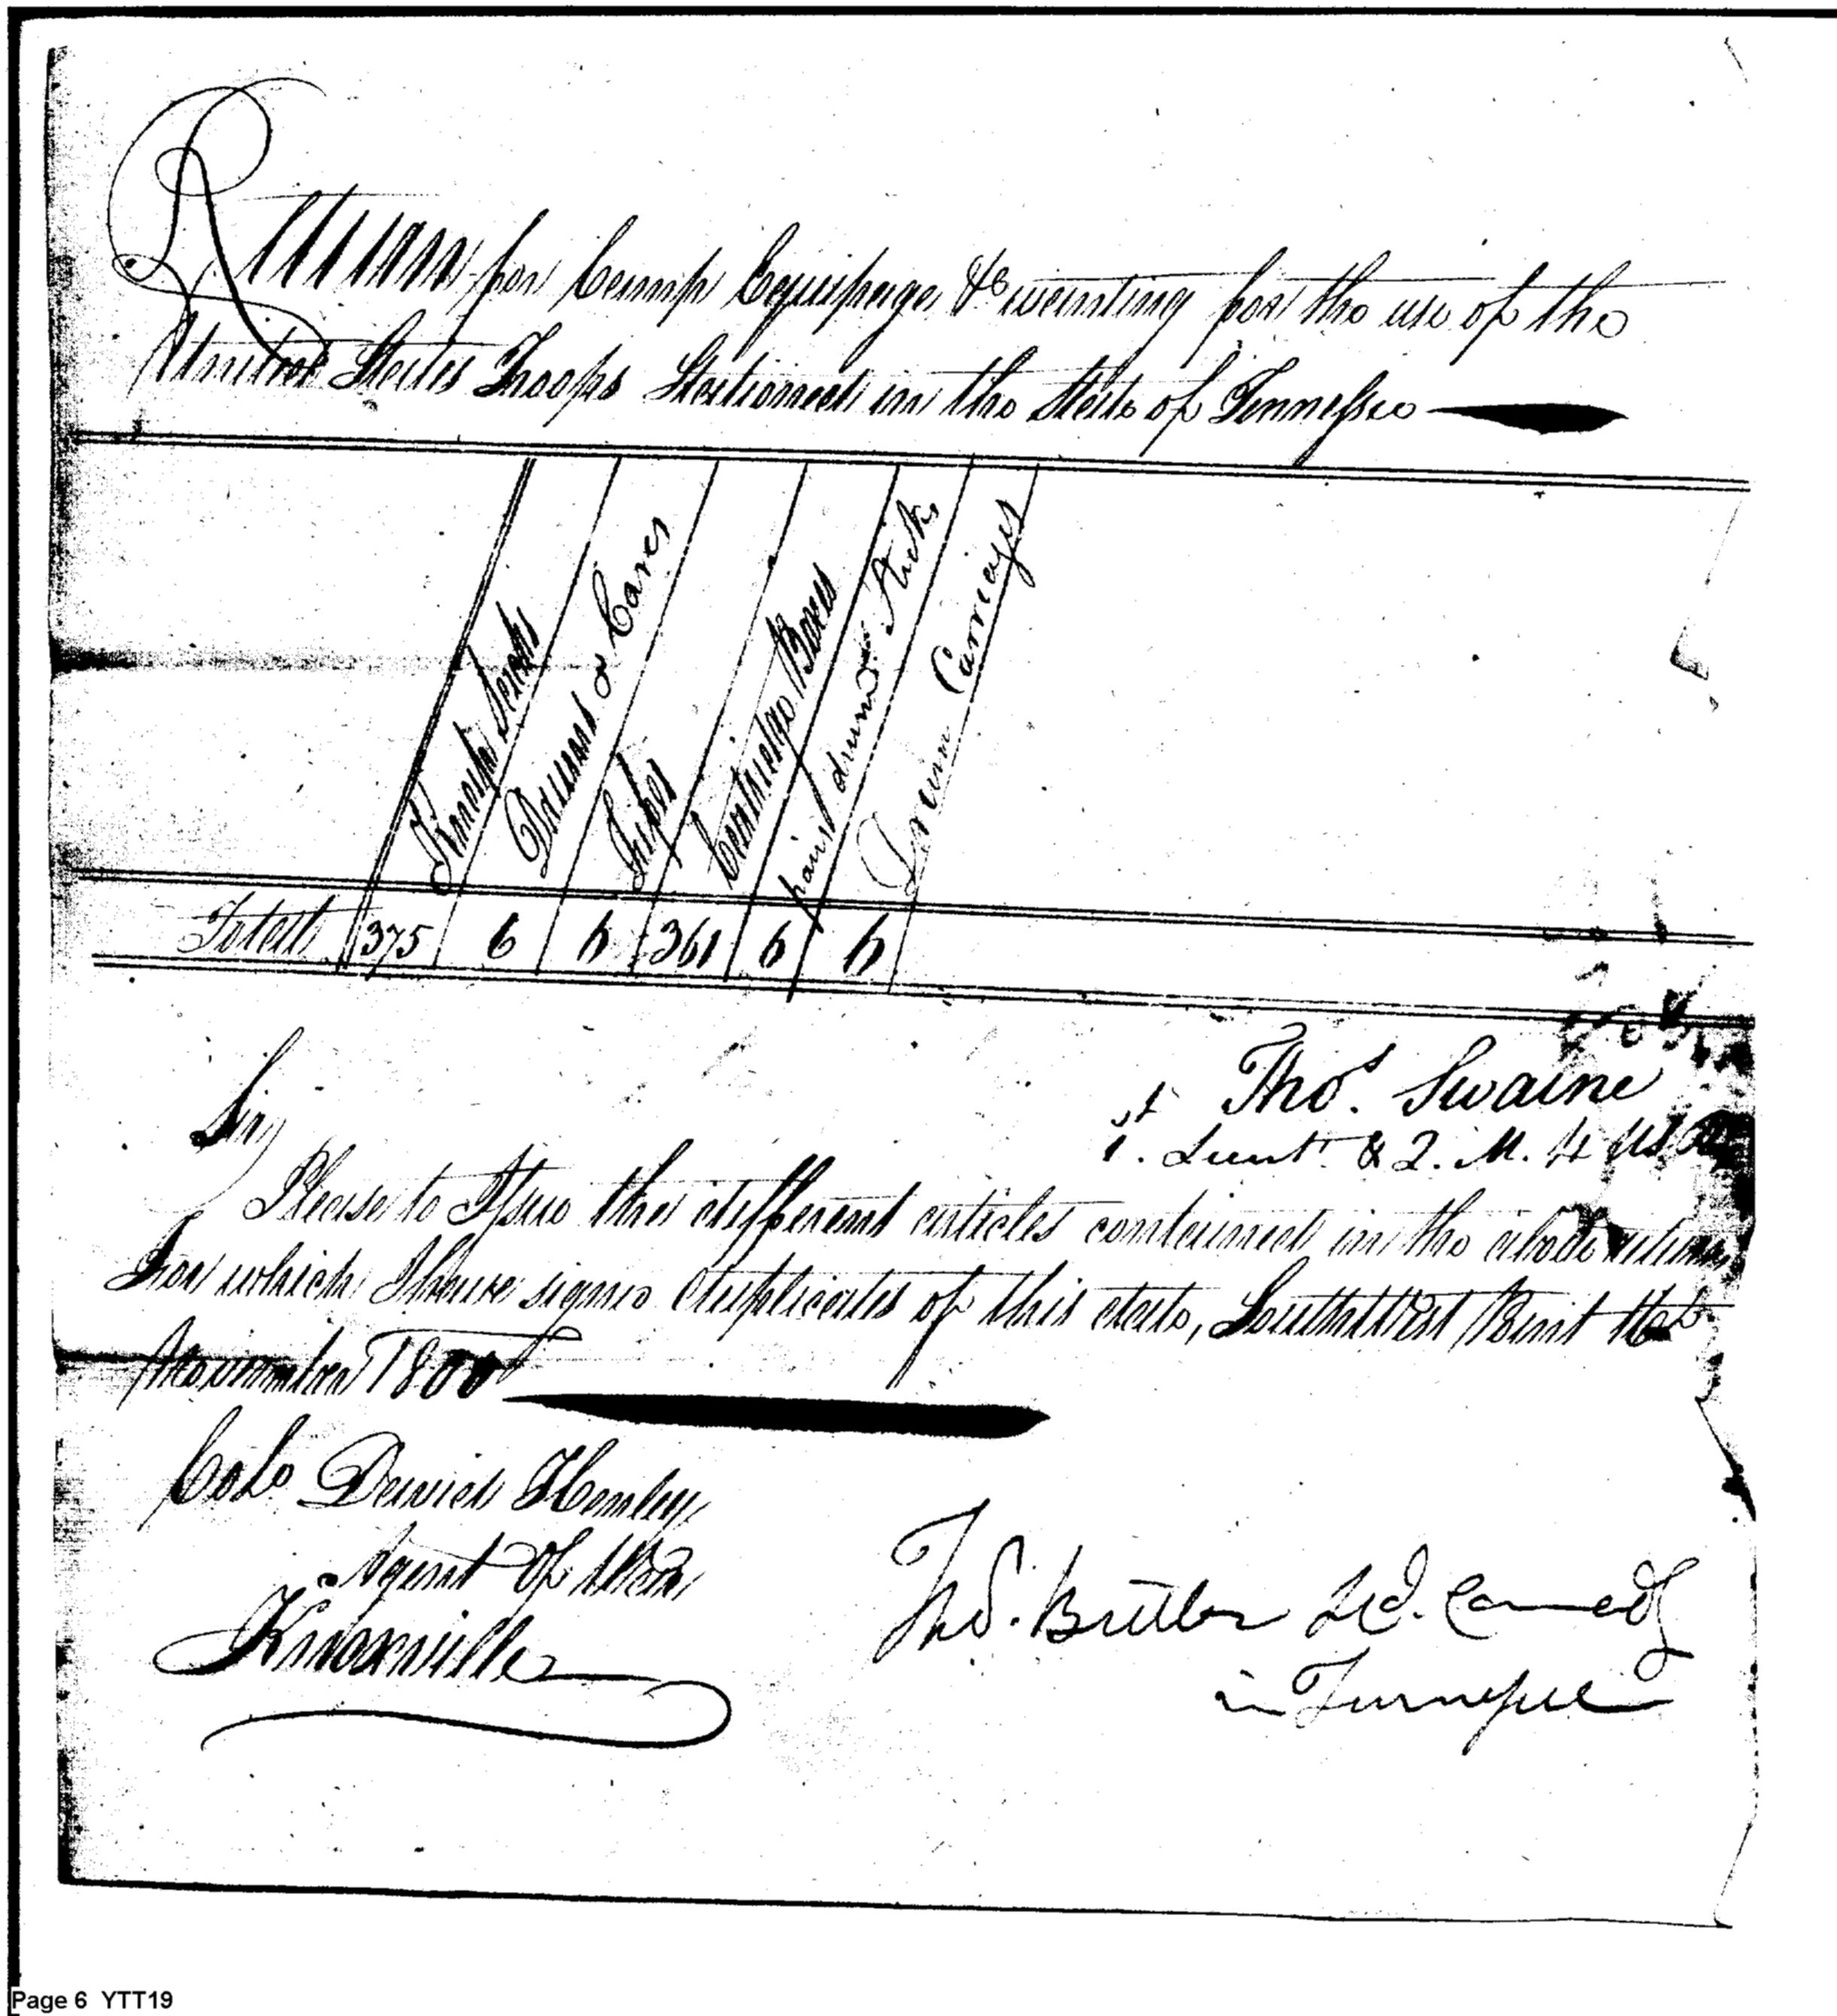 Return for Camp Equipage &c wanting for the use of the
United States Troops Stationed in the State of Tennessee
Knapsacks
Drums & Cases
Fifes
Cartridge Boxes
pairs drum Sticks
Drum Carriages
Total 375 6 6 361 6 6
Thos. Swaine
1st. Lieut. & Q. M. 4
Sir,
Please to Issue the different articles contained in the above return
For which I have signed Duplicates of this date, South West Point
November 1800
Colo David Henley
Agent of War
Knoxville
Thos. Butler Lt. Col. Comd
in Tennessee
Page 6 YTT19